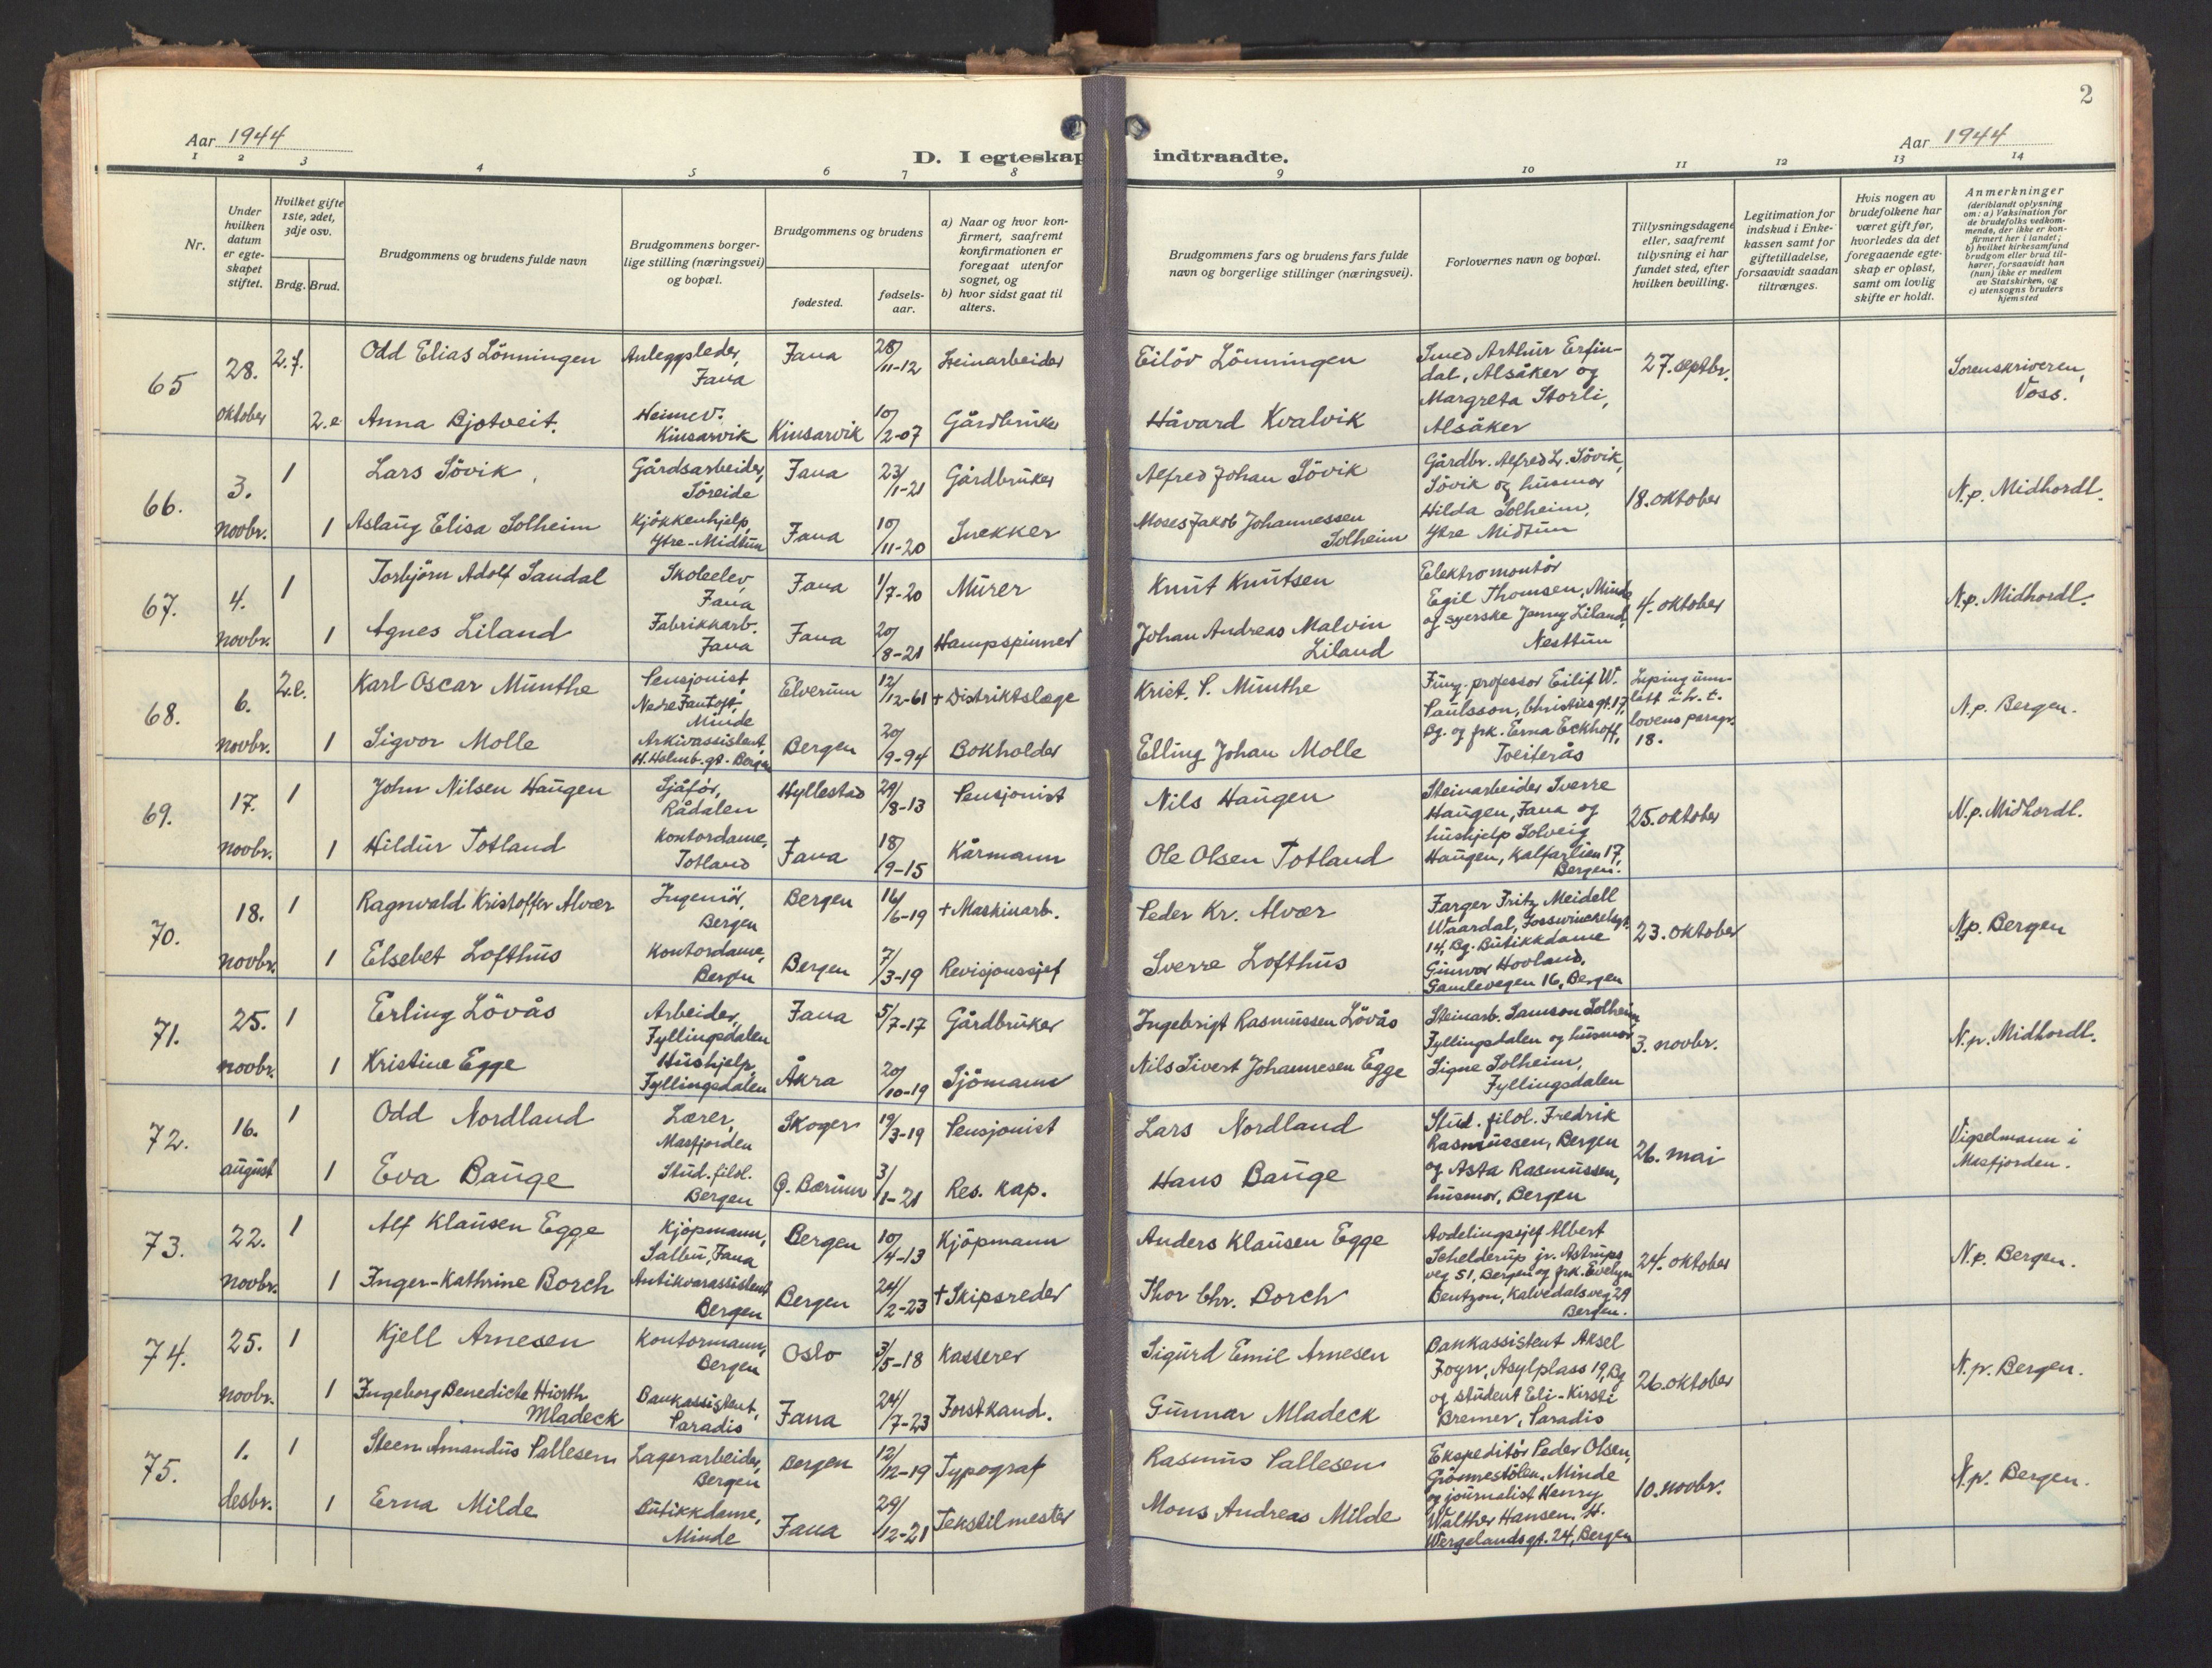 2
Aar 1944
Aar 1944
D. I egteskap indtraadte.
1 2 3 4 5 6 7 8 9 10 11 12 13 14
Nr.
Under hvilken datum er egteskapet stiftet.
Hvilket gifte 1ste, 2det, 3dje osv.
Brdg. Brud.
Brudgommens og brudens fulde navn
Brudgommens borgerlige stilling (næringsvei) og bopæl.
Brudgommens og brudens
fødested.
fødselsaar.
a) Naar og hvor konfirmert, saafremt konfirmationen er foregaat utenfor sognet, og
b) hvor sidst gaat til alters.
Brudgommens fars og brudens fars fulde navn og borgerlige stillinger (næringsvei).
Forlovernes navn og bopæl.
Tillysningsdagene eller, saafremt tillysning ei har fundet sted, efter hvilken bevilling.
Legitimation for indskud i Enkekassen samt for giftetilladelse, forsaavidt saadan tiltrænges.
Hvis nogen av brudefolkene har været gift før, hvorledes da det foregaaende egteskap er opløst, samt om lovlig skifte er holdt.
Anmerkninger (deriblandt oplysning om: a) Vaksination for de brudefolks vedkommende, der ikke er konfirmert her i landet; b) hvilket kirkesamfund brudgom eller brud tilhører, forsaavidt han (hun) ikke er medlem av Statskirken, og c) utensogns bruders hjemsted
65 28. oktober
2.f. Odd Elias Lönningen Anleggsleder, Fana Fana 28/11-12 Steinarbeider Eilöv Lönningen
2.e. Anna Bjotveit. Heimev. Kinsarvik Kinsarvik 10/2-07 Gårdbruker Håvard Kvalvik
Smed Arthur Erfindal, Alsåker og
Margreta Storli,
Alsåker
27. septbr.
Sorenskriveren, Voss.
66. 3. novbr.
1 Lars Sövik Gårdsarbeider, Söreide Fana 23/1-21 Gårdbruker Alfred Johan Sövik
1 Aslaug Elisa Solheim Kjökkenhjelp, Ytre-Midtun Fana 10/11-20 Snekker Moses Jakob Johannessen Solheim
Gårdbr. Alfred L. Sövik,
Sövik og husmor
Hilda Solheim,
Ytre Midtun
18. oktober
N.p. Midhordl.
67. 4. novbr.
1 Torbjörn Adolf Sandal Skoleelev, Fana Fana 1/7-20 Murer Knut Knutsen
1 Agnes Liland Fabrikkarb. Fana Fana 20/8-21 Hampspinner Johan Andreas Malvin Liland
Elektromontör
Egil Thomsen, Minde
og syerske Jenny Liland,
Nesttun
4. oktober
N.p. Midhordl.
68. 6. novbr.
2.e. Karl Oscar Munthe Pensjonist, Nedre Fantoft, Minde Elverum 12/12-61 + Distriktslæge Krist. P. Munthe
1 Sigvor Molle Arkivassistent, H. Holmb. gt. Bergen Bergen 20/9-94 Bokholder Elling Johan Molle
Fung. professor Eilif W.
Paulsson, Christies gt. 17,
Bg. og frk. Erna Eckhoff,
Tveiterås
Lysing unnlatt i h. t. lovens paragr. 18.
N.p. Bergen.
69. 17. novbr.
1 John Nilsen Haugen Sjåför, Rådalen Hyllestad 29/8-13 Pensjonist Nils Haugen
1 Hildur Totland Kontordame, Totland Fana 18/9-15 Kårmann Ole Olsen Totland
Steinarbeider Sverre
Haugen, Fana og
hushjelp Solveig
Haugen, Kalfarlien 17,
Bergen.
25. oktober
N.p. Midhordl.
70. 18. novbr.
1 Ragnvald Kristoffer Alvær Ingeniör, Bergen Bergen 16/6-19 + Maskinarb. Peder Kr. Alvær
1 Elsebet Lofthus Kontordame, Bergen Bergen 7/3-19 Revisjonssjef Sverre Lofthus
Farger Fritz Meidell
Waardal, Fosswinckelsgt.
14, Bg. Butikkdame
Gunvor Hovland,
Gamlevegen 16, Bergen
23. oktober
N.p. Bergen
71. 25. novbr.
1 Erling Lövås Arbeider, Fyllingsdalen Fana 5/7-17 Gårdbruker Ingebrigt Rasmussen Lövås
1 Kristine Egge Hushjelp, Fyllingsdalen Åkra 20/10-19 Sjömann Nils Sivert Johannesen Egge
Steinarb. Samson Solheim,
Fyllingsdalen og husmor
Signe Solheim,
Fyllingsdalen
3. novbr.
N.p. Midhordl.
72. 16. august
1 Odd Nordland Lærer, Masfjorden Skoger 19/3-19 Pensjonist Lars Nordland
1 Eva Bauge Stud. filol. Bergen Ö. Bærum 3/1-21 Res. kap. Hans Bauge
Stud. filol. Fredrik
Rasmussen, Bergen
og Asta Rasmussen,
husmor, Bergen
26. mai
Vigselmann i Masfjorden.
73. 22. novbr.
1 Alf Klausen Egge Kjöpmann, Sælbu, Fana Bergen 10/4-13 Kjöpmann Anders Klausen Egge
1 Inger-Kathrine Borch Antikvarassistent Bergen Bergen 24/2-23 + Skipsreder Thor Chr. Borch
Avdelingssjef Albert
Schelderup jr. Astrups
veg 51, Bergen og frk. Evelyn
Bentzon, Kalvedalsveg 29
Bergen.
24. oktober
N.p. Bergen.
74. 25. novbr.
1 Kjell Arnesen Kontormann, Bergen Oslo 3/5-18 Kasserer Sigurd Emil Arnesen
1 Ingeborg Benedicte Hiorth Mladeck Bankassistent, Paradis Fana 24/7-23 Forstkand. Gunnar Mladeck
Bankassistent Aksel
Foyn, Asylplass 19, Bg
og student Eli-Kirsti
Bremer, Paradis
26. oktober
N.p. Bergen.
75. 1. desbr.
1 Steen Amandus Pallesen Lagerarbeider, Bergen Bergen 12/12-19 Typograf Rasmus Pallesen
1 Erna Milde Butikkdame, Minde Fana 29/12-21 Tekstilmester Mons Andreas Milde
Ekspeditör Peder Olsen,
Grönnestölen, Minde
og journalist Henry
Walther Hansen, H.
Wergelandsgt. 24, Bergen
10. novbr.
N.p. Bergen.